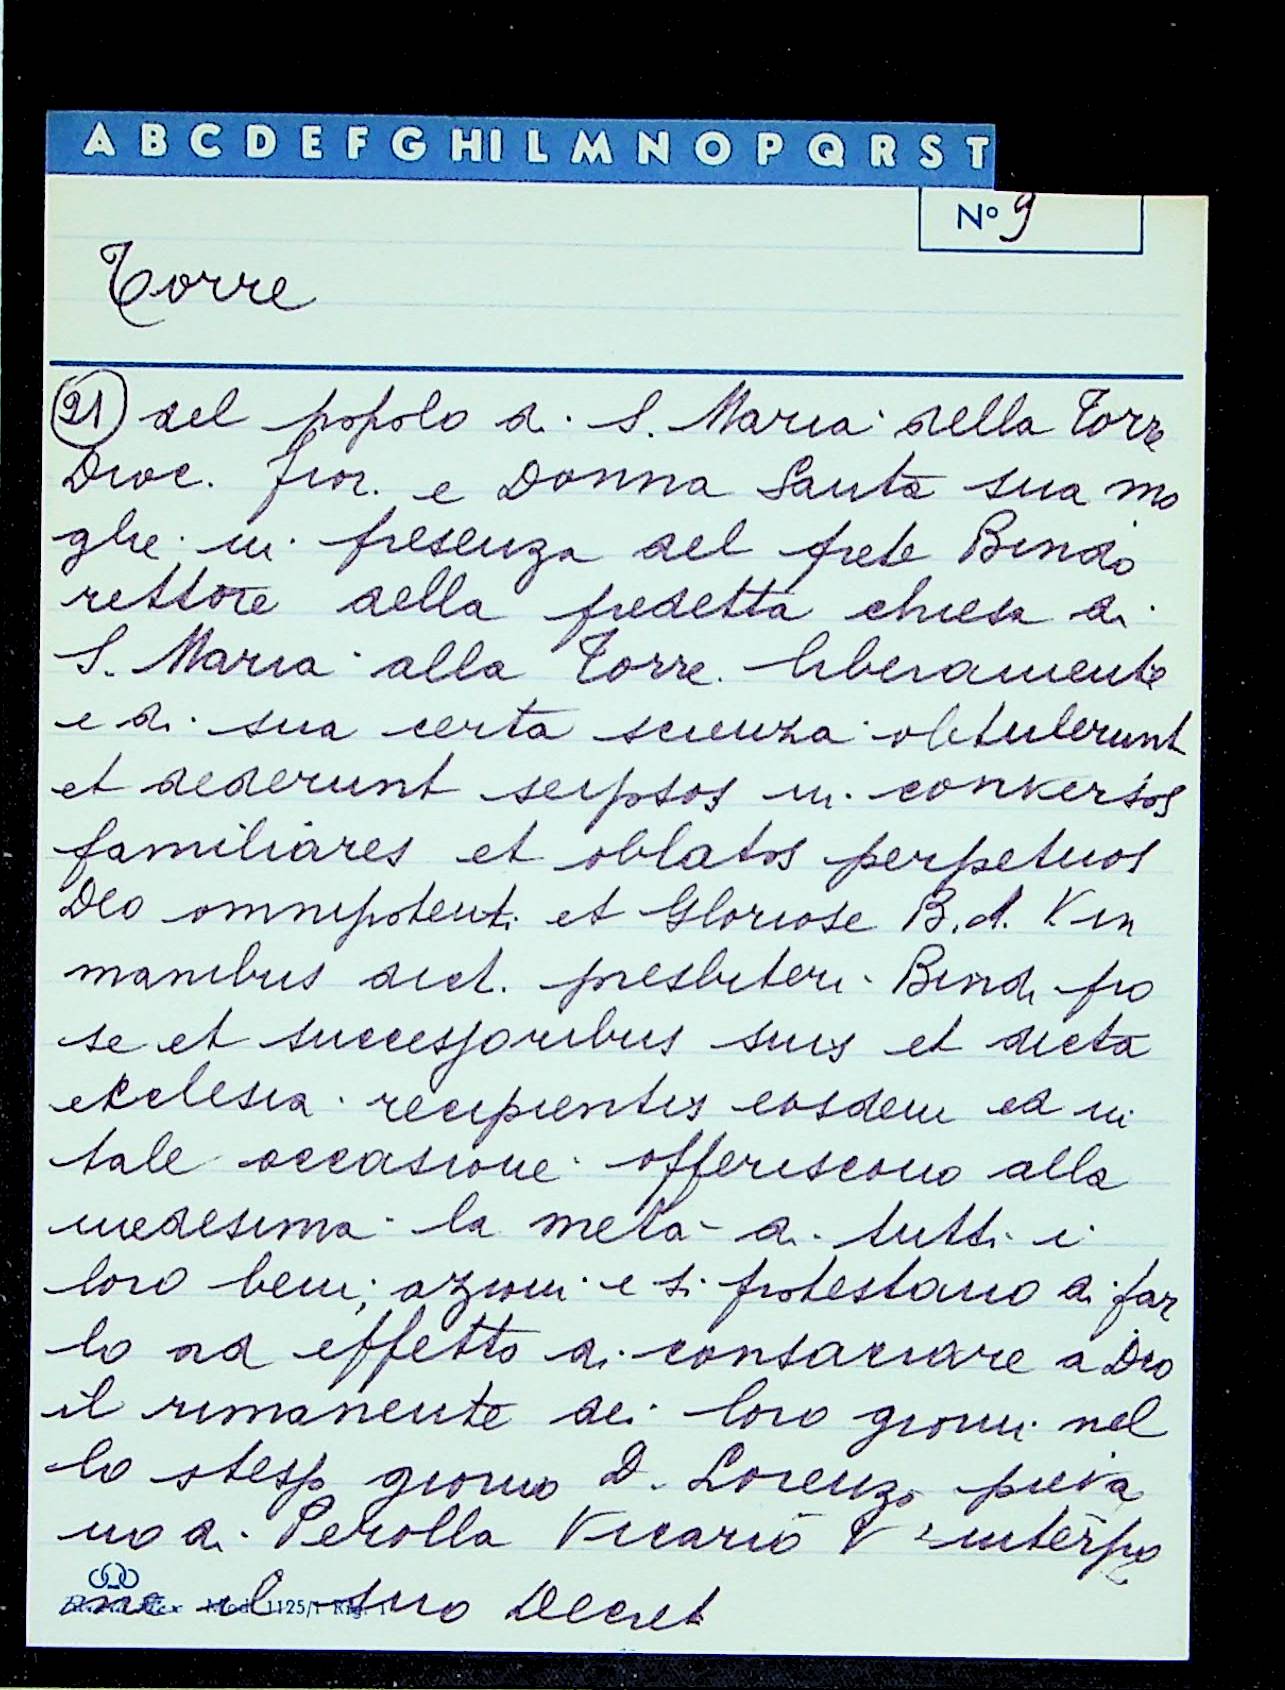 A B C D E F G HI L M N O P Q R S T
N° 9
Torre
21 del popolo di S. Maria della Torre
Dioc. fior. e Donna Santa sua mo
glie in presenza del prete Bindo
rettore della predetta chiesa di
S. Maria alla Torre. liberamente
e di sua certa scienza obtulerunt
et dederunt seipsos in conversos
familiares et oblatos perpetuos
Deo omnipotenti et Gloriose B. d. V in
manibus dict. presbiteri Bindi pro
se et successoribus suis et dicta
ecclesia recipientis eosdem ed in
tale occasione offeriscono alla
medesima la metà di tutti i
loro beni, azioni e si protestano di far
lo ad effetto di consacrare a Dio
il rimanente dei loro giorni nel
lo stesso giorno D. Lorenzo pieva
no di Perolla Vicario V interpo
ne il suo Decret
Mod. 1125/1 Rig. 1